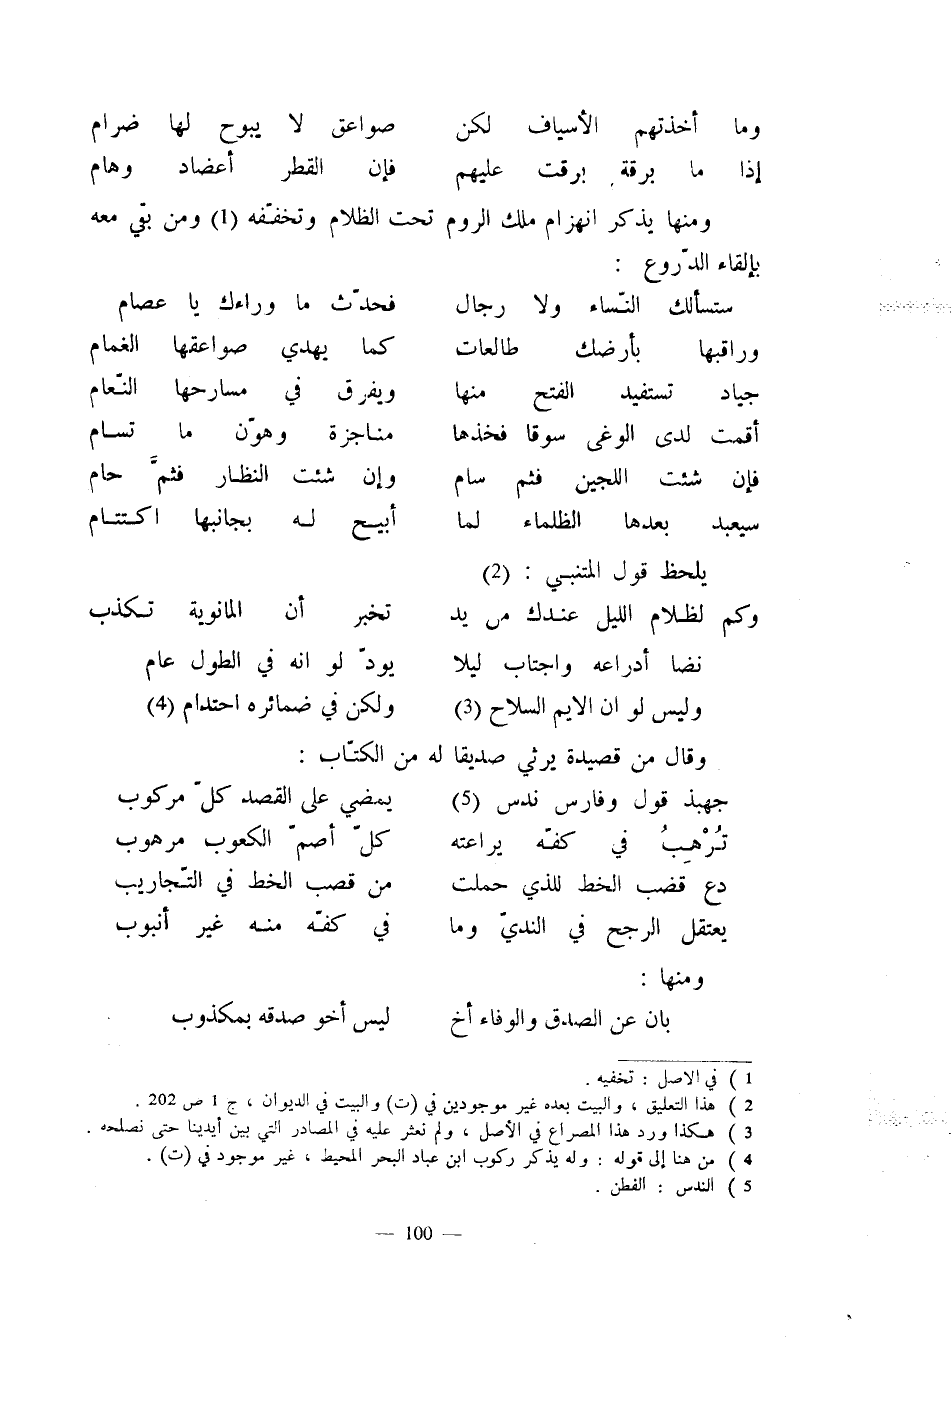 وما أخذتهم الأسياف لكن صواعق لا يبوح لها ضرام
إذا ما برقة برقت عليهم فإن القطر أعضاد وهام
ومنها يذكر انهزام ملك الروم تحت الظلام وتخفّفه (1) ومن بقي معه
بإلقاء الدّروع :
ستسألك النّساء ولا رجال فحدّث ما وراءك يا عصام
وراقبها بأرضك طالعات كما يهدي صواعقها الغمام
جياد تستفيد الفتح منها ويفرق في مسارحها النّعام
أقمت لدى الوغى سوقا فخذها مناجزة وهوّن ما تسام
فإن شئت اللجين فثم سام وإن شئت النظار فثمَّ حام
سيعبد بعدها الظلماء لما أبيح له بجانبها اكتتام
يلحظ قول المتنبي : (2)
وكم لظلام الليل عندك من يد تخبر أن المانوية تكذب
نضا أدراعه واجتاب ليلا يودّ لو انه في الطول عام
وليس لو ان الايم السلاح (3) ولكن في ضمائره احتدام (4)
وقال من قصيدة يرثي صديقا له من الكتّاب :
جهبذ قول وفارس ندس (5) يمضي على القصد كلّ مركوب
تُرْهِبُ في كفّه يراعته كلّ أصمّ الكعوب مرهوب
دع قضب الخط للذي حملت من قصب الخط في التّجاريب
يعتقل الرجح في النديّ وما في كفّه منه غير أنبوب
ومنها :
بان عن الصدق والوفاء أخ ليس أخو صدقه بمكذوب
1 ) في الاصل : تخفيه .
2 ) هذا التعليق ، والبيت بعده غير موجودين في (ت) والبيت في الديوان ، ج 1 ص 202 .
3 ) هكذا ورد هذا المصراع في الأصل ، ولم نعثر عليه في المصادر التي بين أيدينا حتى نصلحه .
4 ) من هنا إلى قوله : وله يذكر ركوب ابن عباد البحر المحيط ، غير موجود في (ت) .
5 ) الندس : الفطن .
— 100 —